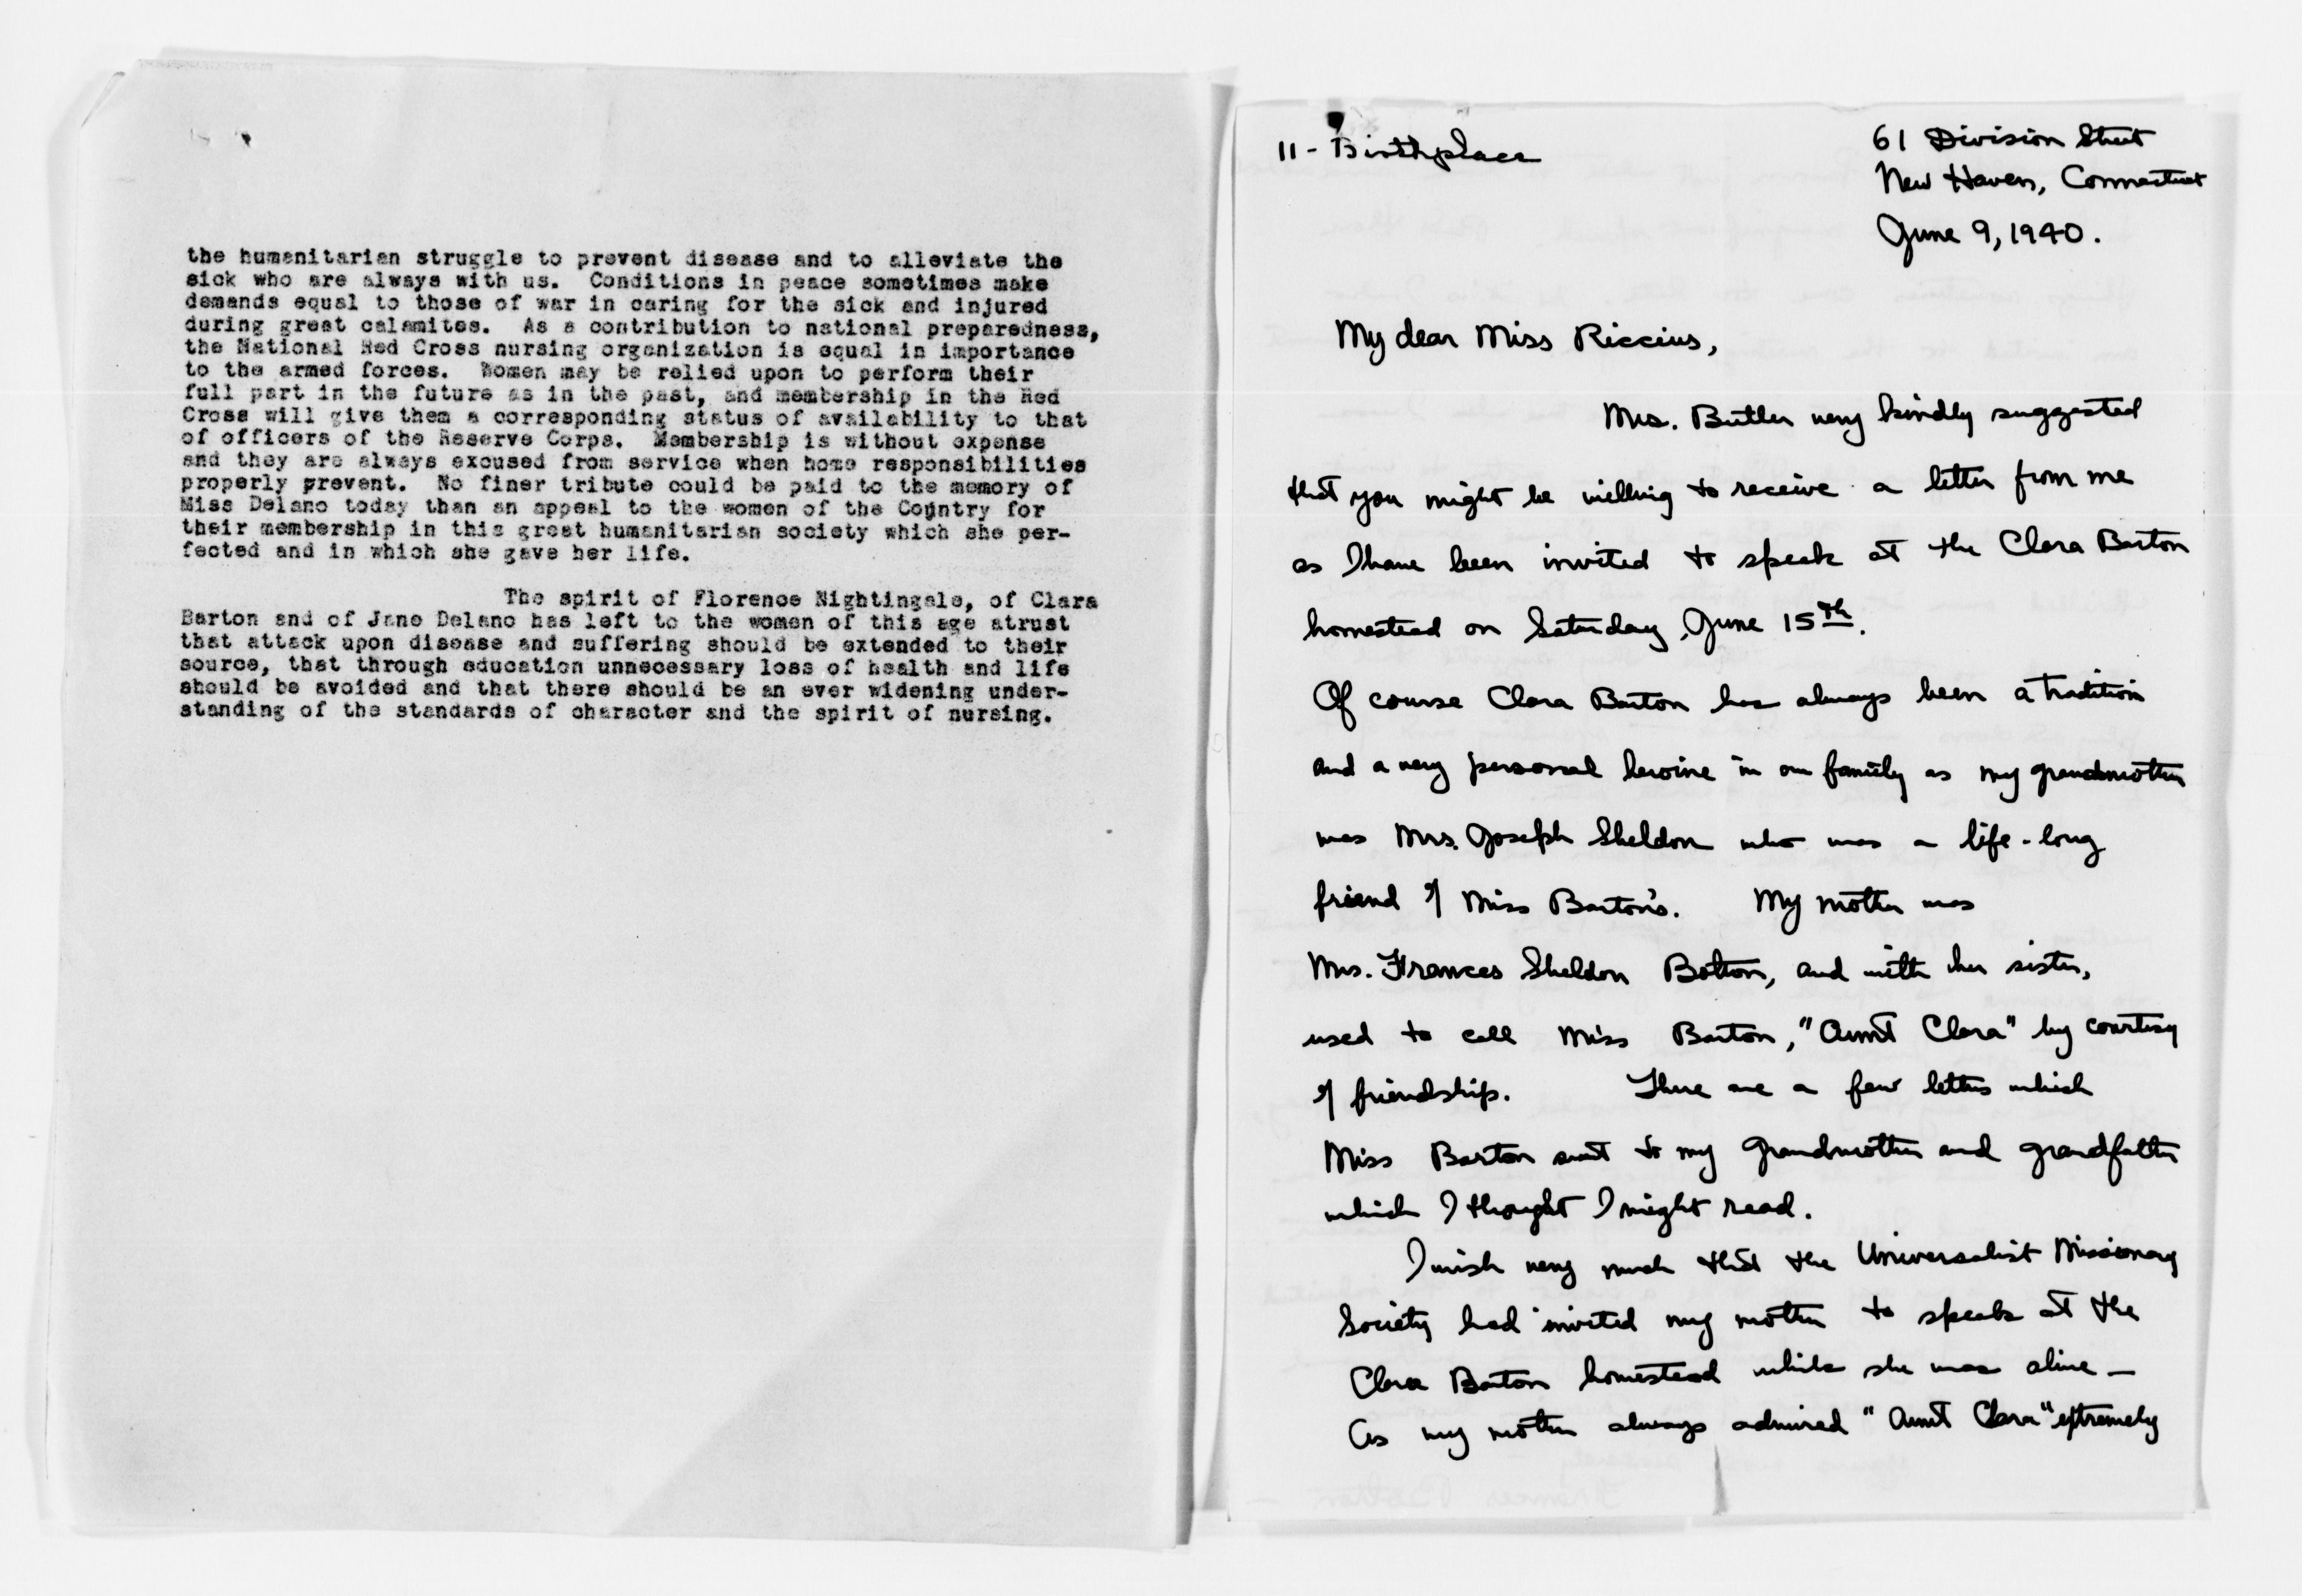 the humanitarian struggle to prevent disease and to alleviate the
sick who are always with us. Conditions in peace sometimes make
demands equal to those of war in caring for the sick and injured
during great calamites. As a contribution to national preparedness,
the National Red Cross nursing organization is equal in importance
to the armed forces. Women may be relied upon to perform their
full part in the future as in the past, and membership in the Red
Cross will give them a corresponding status of availability to that
of officers of the Reserve Corps. Membership is without expense
and they are always excused from service when home responsibilities
properly prevent. No finer tribute could be paid to the memory of
Miss Delano today than an appeal to the women of the Country for
their membership in this great humanitarian society which she per-
fected and in which she gave her life.
The spirit of Florence Nightingale, of Clara
Barton and of Jane Delano has left to the women of this age atrust
that attack upon disease and suffering should be extended to their
source, that through education unnecessary loss of health and life
should be avoided and that there should be an ever widening under-
standing of the standards of character and the spirit of nursing.
11 - Birthplace
61 Division Street
New Haven, Connecticut
June 9, 1940.
My dear Miss Riccius,
Mrs. Butler very kindly suggested
that you might be willing to receive a letter from me
as I have been invited to speak at the Clara Barton
homestead on Saturday, June 15th.
Of course Clara Barton has always been a tradition
and a very personal heroine in our family as my grandmother
was Mrs. Joseph Sheldon who was a life-long
friend of Miss Barton's. My mother was
Mrs. Frances Sheldon Bolton, and with her sister,
used to call Miss Barton, "Aunt Clara" by courtesy
of friendship. There are a few letters which
Miss Barton sent to my grandmother and grandfather
which I thought I might read.
I wish very much that the Universalist Missionary
Society had invited my mother to speak at the
Clara Barton homestead while she was alive —
As my mother always admired "Aunt Clara" extremely